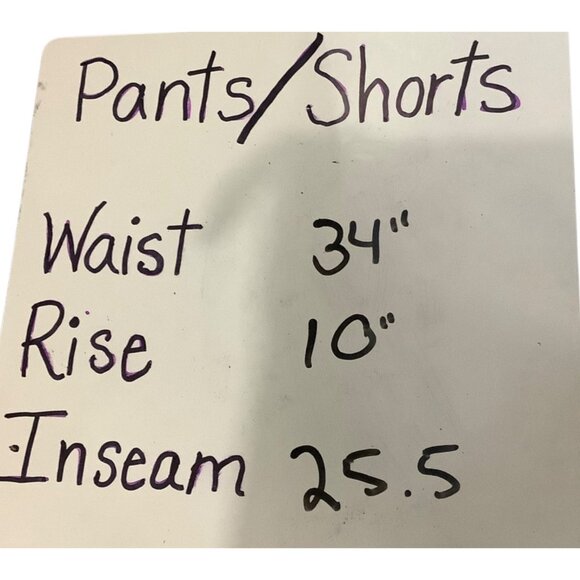 Pants/Shorts
Waist 34"
Rise 10"
Inseam 25.5